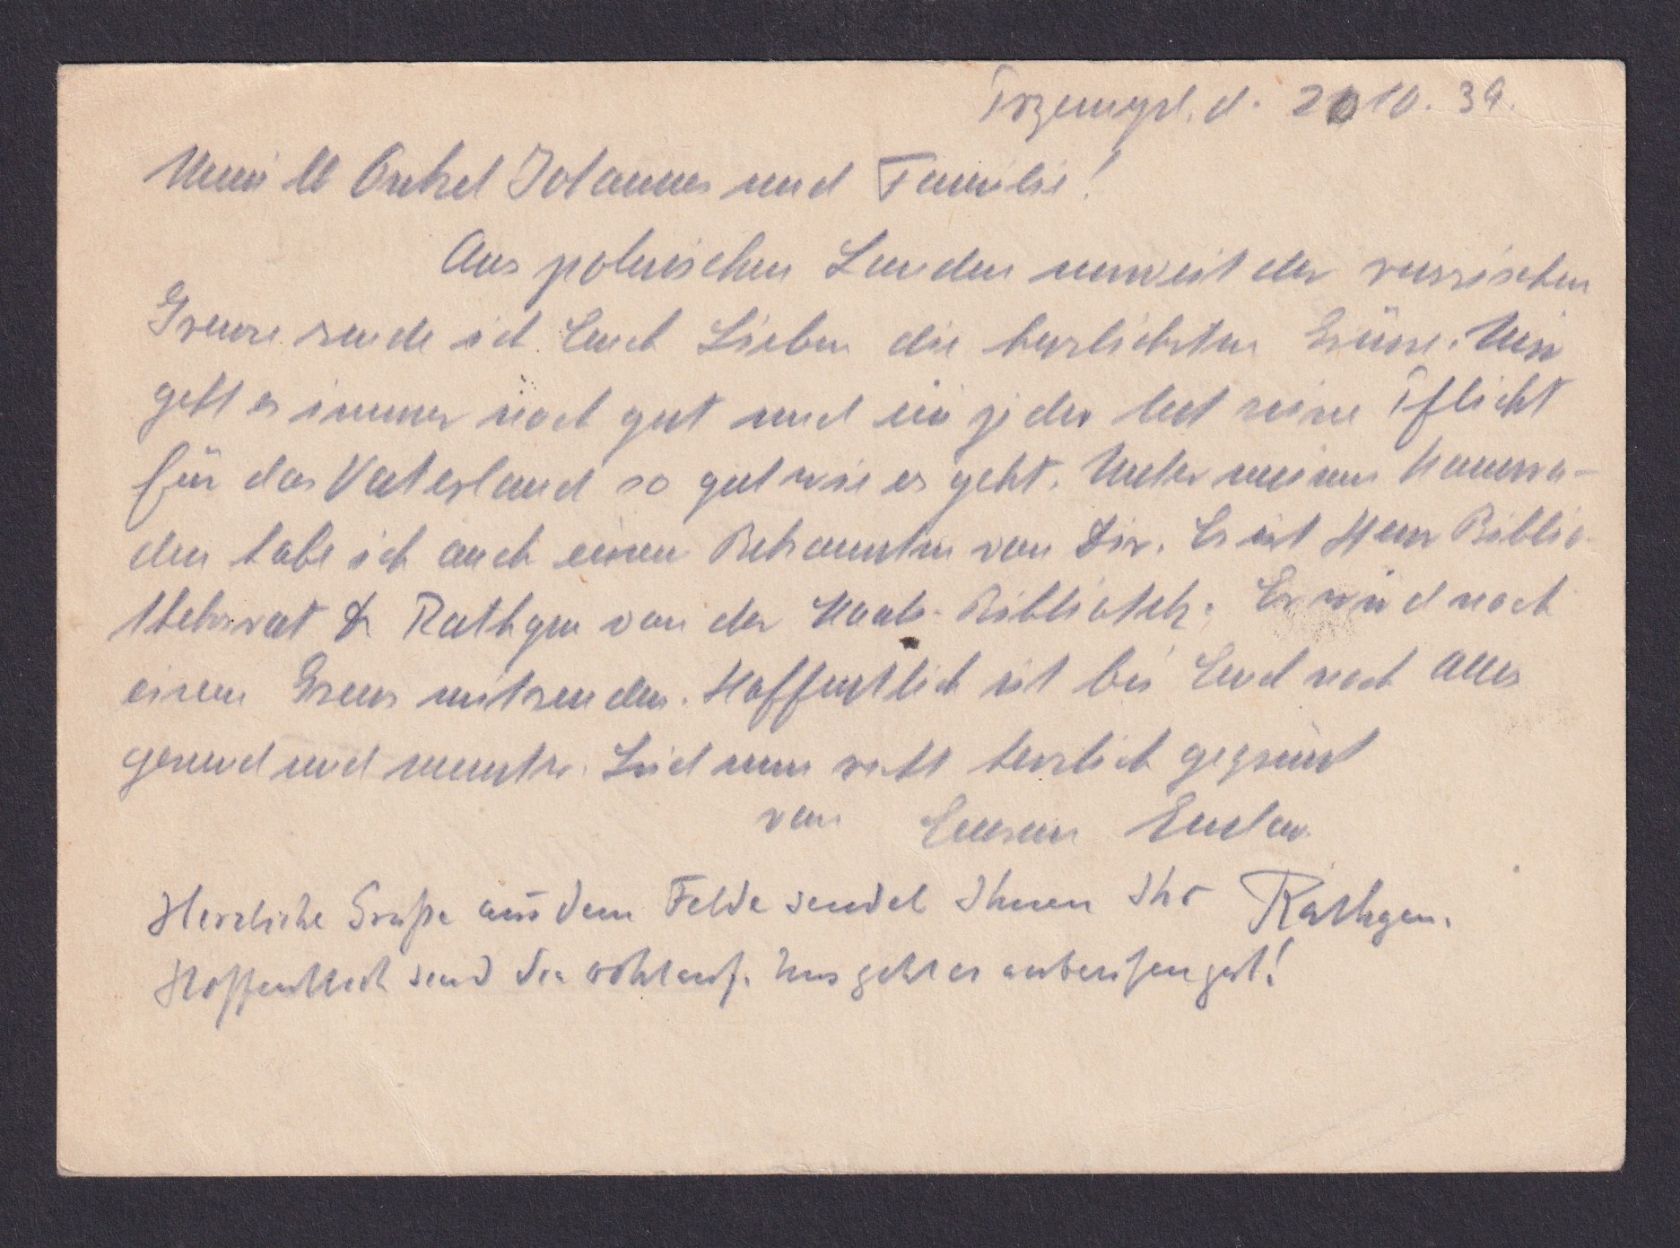 Przemysl. d. 20 10. 39.
Mein lb Onkel Johannes und Familie!
Aus polnischen Landen unweit der russischen
Grenze sende ich Euch Lieben die herzlichsten Grüsse. Mir
geht es immer noch gut und ein jeder tut seine Pflicht
für das Vaterland so gut wie es geht. Unter meinen Kamera-
den habe ich auch einen Bekannten von Dir. Es ist Herr Biblio-
theksrat Dr Rathgen von der Staats-Bibliothk. Er wird noch
einen Gruss mitsenden. Hoffentlich ist bei Euch noch Alles
gesund und munter. Seid nun recht herzlich gegrüsst
von Eurem
Herzliche Grüße aus dem Felde sendet Ihnen Ihr Rathgen.
Hoffentlich sind Sie wohlauf. Uns geht es unberufen gut!